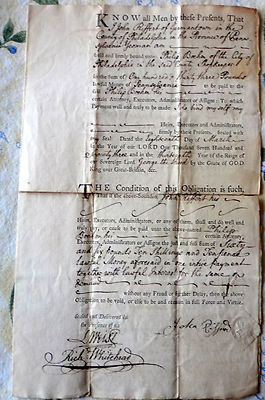 KNOW all Men by these Presents, That
I John Riffert of Germantown in the
County of Philadelphia in the Province of Penn
sylvania Yeoman am
held and firmly bound unto Philip Boehm of the City of
Philadelphia in the said County Shopkeeper
in the Sum of One hundred & thirty three Pounds
lawful Money of Pennsylvania to be paid to the
said Philip Boehm his
certain Attorney, Executors, Administrators or Assigns: To which
Payment well and truly to be made, I do bind myself my
Heirs, Executors and Administrators,
firmly by these Presents, Sealed with
my Seal: Dated the Day of March
in the Year of our LORD One Thousand Seven Hundred and
Seventy three, and in the thirteenth Year of the Reign of
our Sovereign Lord George the third by the Grace of GOD
King over Great-Britain, &c.
THE Condition of this Obligation is such,
That if the above-bounden John Riffert his
Heirs, Executors, Administrators, or any of them, shall and do well and
truly pay, or cause to be paid unto the above-named Philip
Boehm his certain Attorney,
Executors, Administrators or Assigns the just and full Sum of Sixty
and six Pounds Ten Shillings and
lawful Money aforesaid in one intire payment
together with lawful Interest for the same
without any Fraud or further Delay, then the above
Obligation to be void, or else to be and remain in full Force and Virtue.
Sealed and Delivered in
the presence of us
Rich. Whitehead